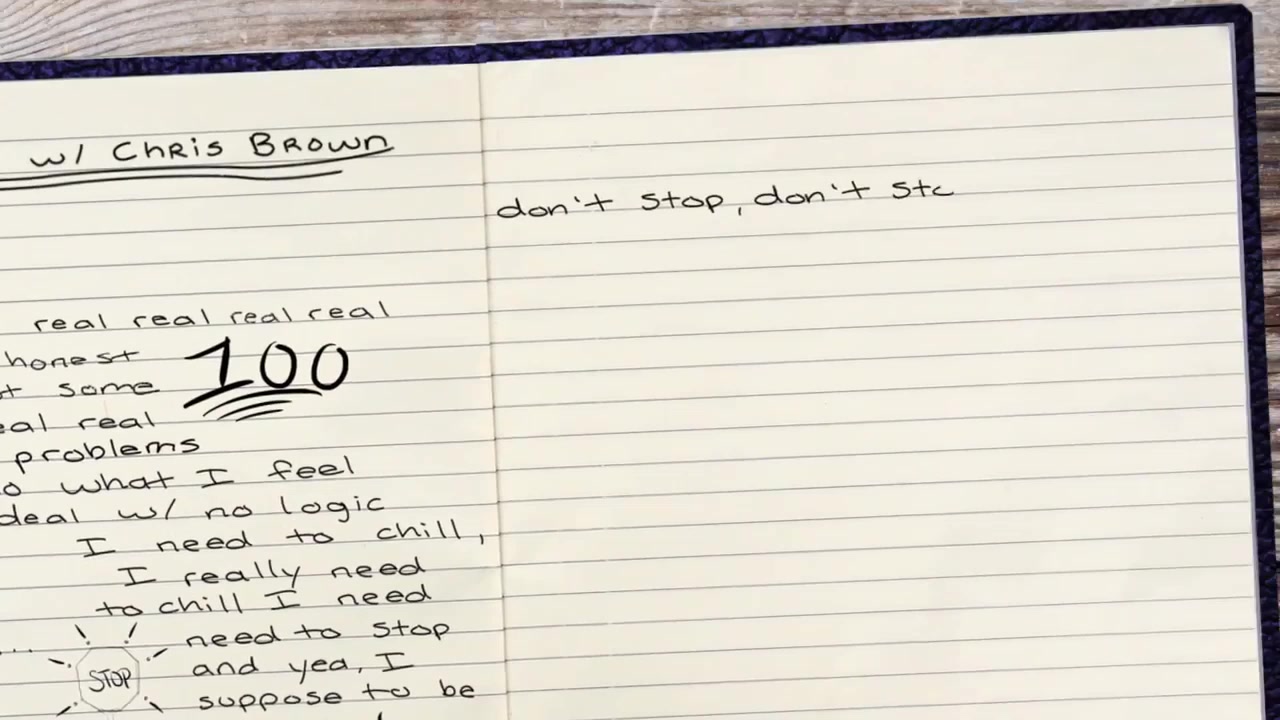 w/ Chris Brown
real real real real
honest
100
some
real
problems
what I feel
deal w/ no logic
I need to chill,
I really need
to chill I need
need to stop
and yea, I
STOP
suppose to be
don't stop, don't sto